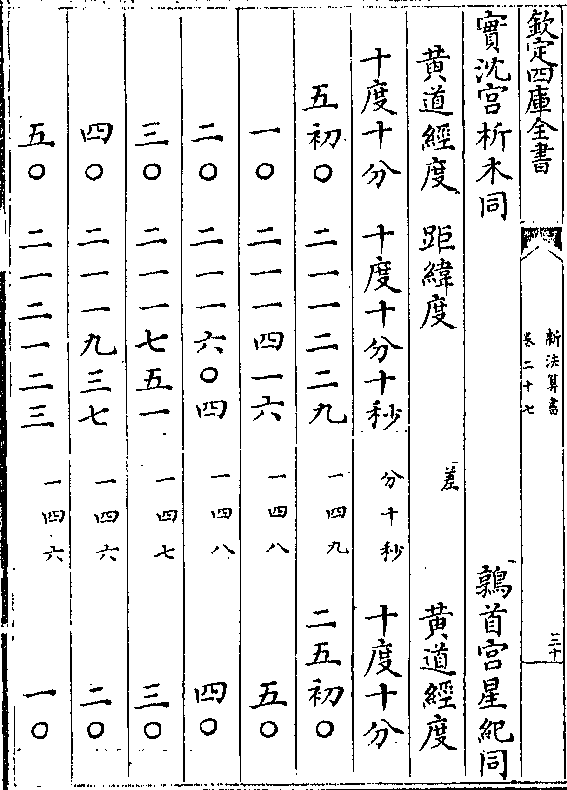 欽定四庫全書 新法算書 卷二十七 三十
實沈宫析木同 鶉首宫星紀同
黄道經度 距緯度 差 黄道經度
十度十分 十度十分十秒 分十秒 十度十分
五初〇 二一一二二九 一四九 二五初〇
一〇 二一一四一六 一四八 五〇
二〇 二一一六〇四 一四八 四〇
三〇 二一一七五一 一四七 三〇
四〇 二一一九三七 一四六 二〇
五〇 二一二一二三 一四六 一〇